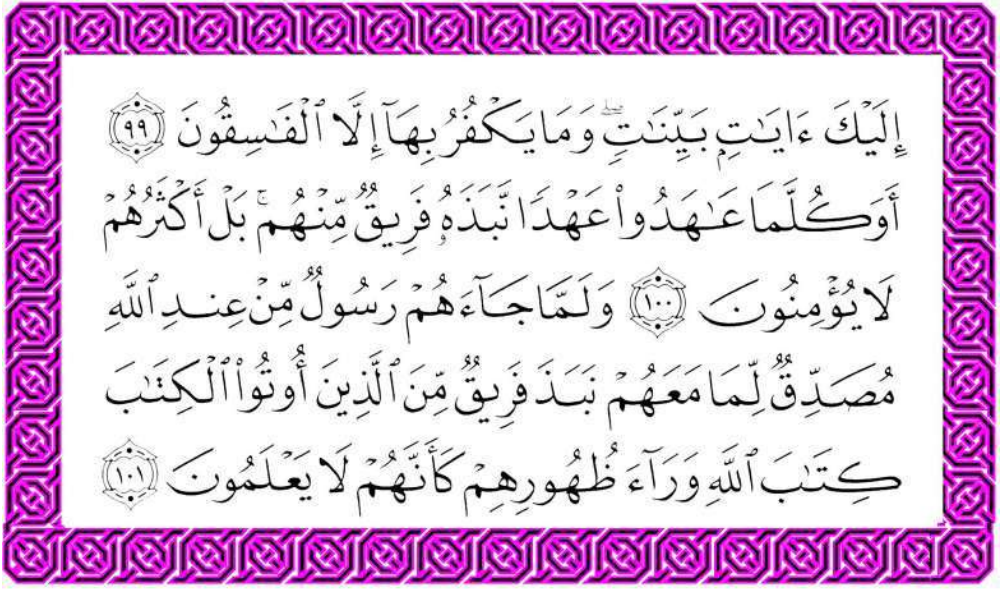 إِلَيْكَ ءَايَٰتِۭ بَيِّنَٰتٍۖ وَمَا يَكْفُرُ بِهَآ إِلَّا ٱلْفَٰسِقُونَ ٩٩
أَوَكُلَّمَا عَٰهَدُوا۟ عَهْدًا نَّبَذَهُۥ فَرِيقٌ مِّنْهُمۚ بَلْ أَكْثَرُهُمْ
لَا يُؤْمِنُونَ ١٠٠ وَلَمَّا جَآءَهُمْ رَسُولٌ مِّنْ عِندِ ٱللَّهِ
مُصَدِّقٌ لِّمَا مَعَهُمْ نَبَذَ فَرِيقٌ مِّنَ ٱلَّذِينَ أُوتُوا۟ ٱلْكِتَٰبَ
كِتَٰبَ ٱللَّهِ وَرَآءَ ظُهُورِهِمْ كَأَنَّهُمْ لَا يَعْلَمُونَ ١٠١